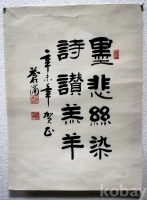 墨悲絲染
詩讚羔羊
辛未年
kobay